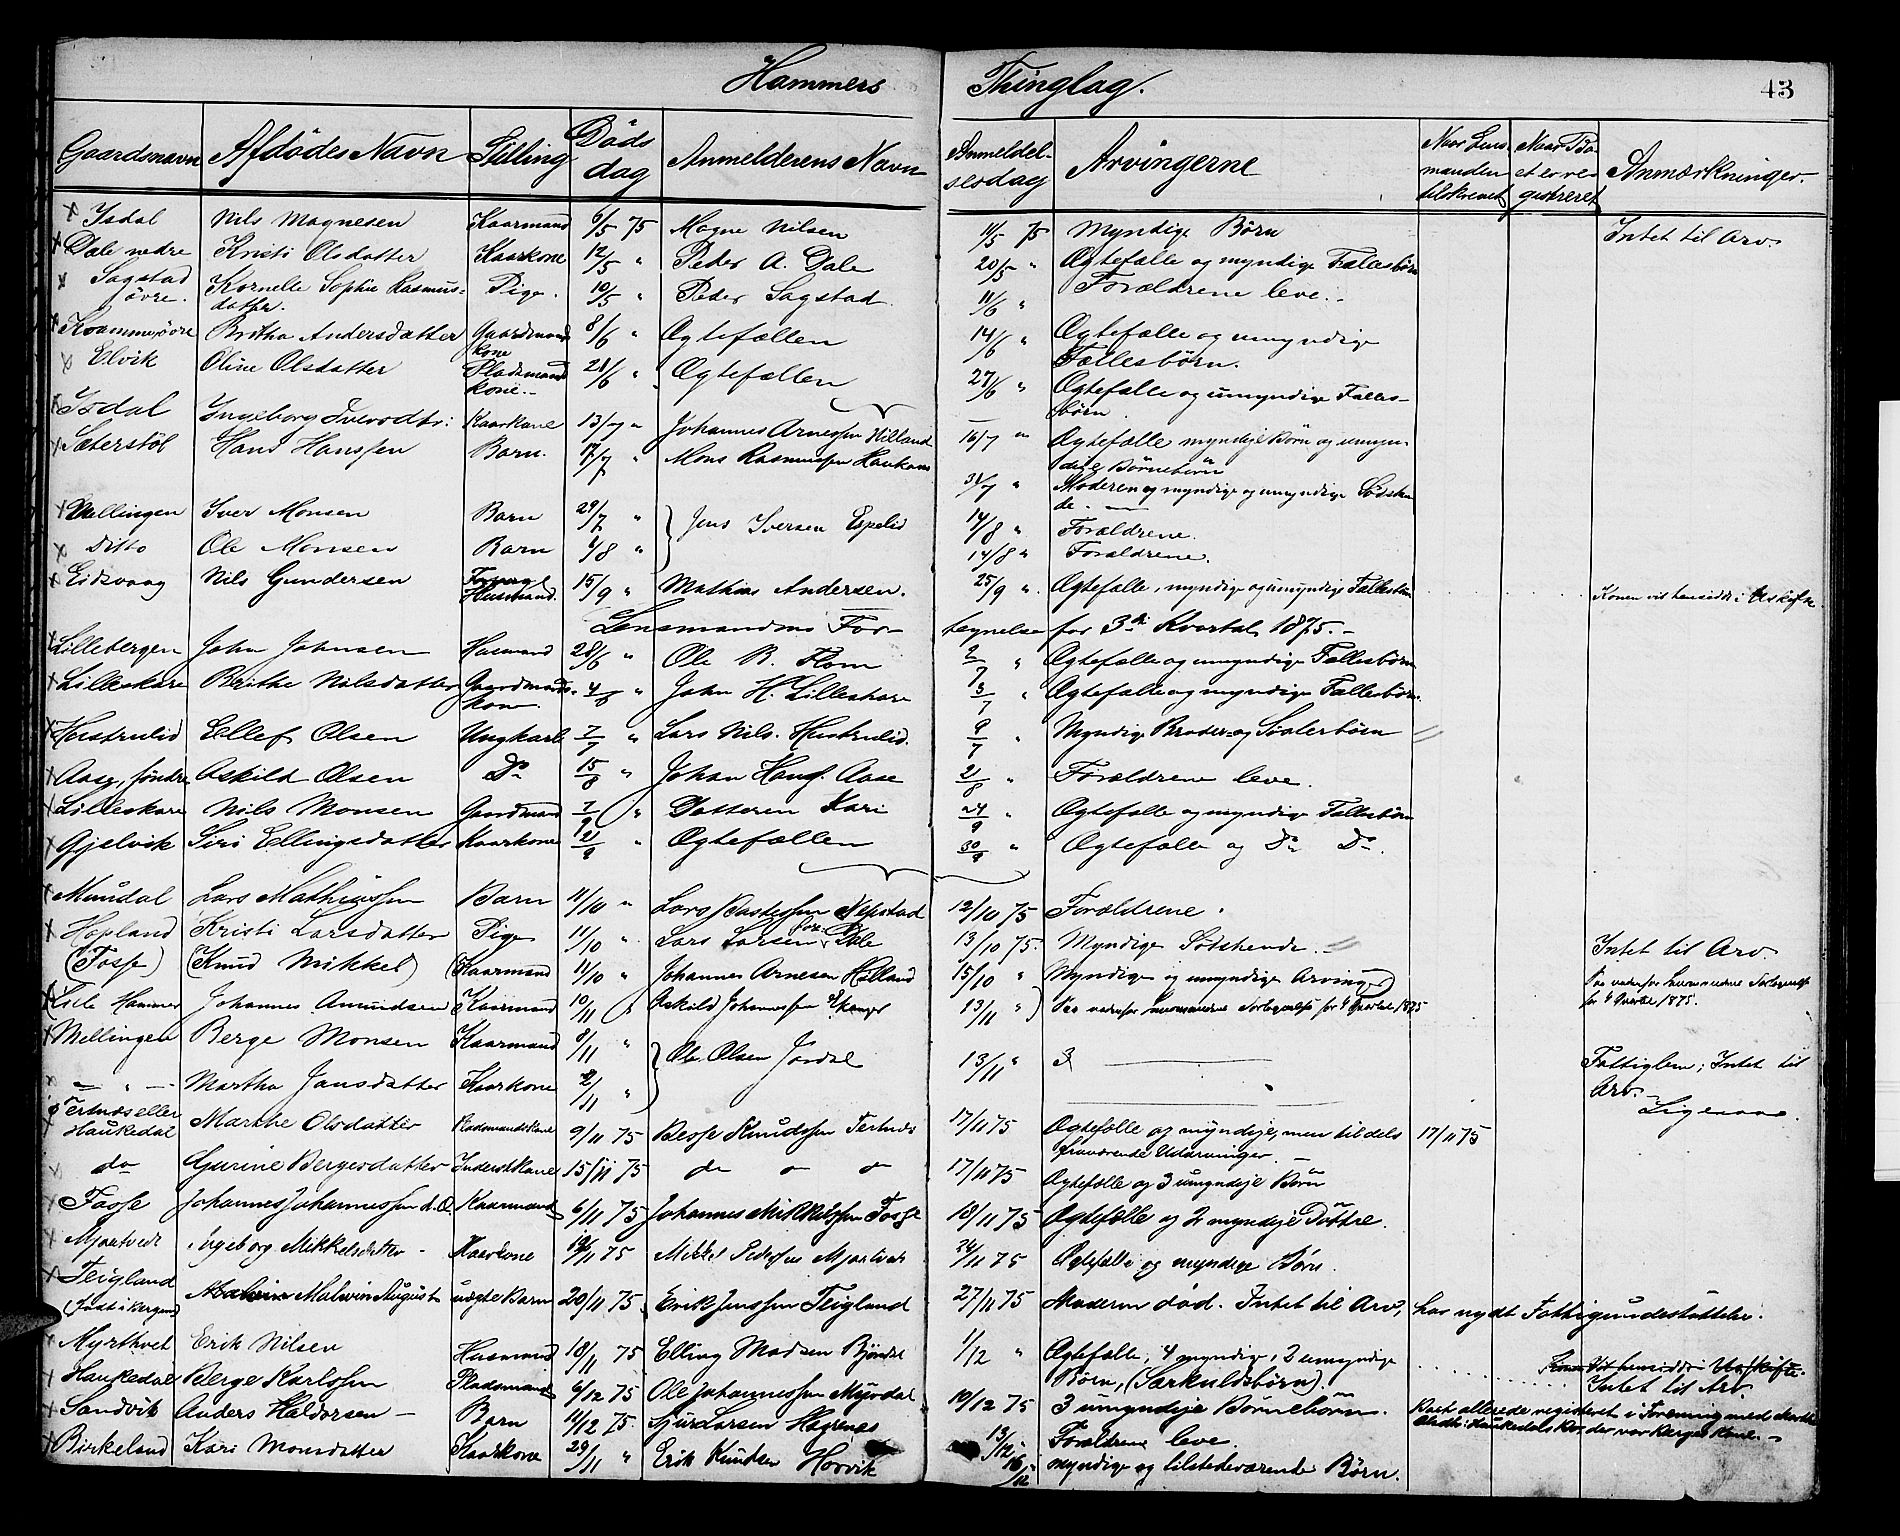 Hammers Thinglag. 43
Gaardsnavn Afdødes Navn Stilling Døds dag Anmelderens Navn Anmeldelsesdag Arvingerne Naar Lensmanden tilskrevet Naar Boet er registreret Anmærkninger.
Isdal Nils Magnesen Kaarmand 6/5 75 Magne Nilsen 11/5 75 Myndige Børn Intet til Arv.
Dale nedre Kristi Olsdatter Kaarkone 12/5 " Peder A. Dale 20/5 " Ægtefælle og myndige Fællesbørn
Sagstad øvre. Kornelle Sophie Rasmusdatter. Pige. 10/5 " Peder Sagstad 11/6 " Forældrene leve.
Kvamme øvre Britha Andersdatter Gaardmandkone 8/6 " Ægtefællen 14/6 " Ægtefælle og umyndige Fællesbørn.
Elvik Oline Olsdatter Pladsmandkone 21/6 " Ægtefællen 27/6 " Ægtefælle og umyndige Fællesbørn.
Isdal Ingeborg Iversdtr: Kaarkone 13/7 " Johannes Arnessen Hilland 16/7 " Ægtefælle myndeje Børn og umyndige Børnebørn
Sæterstøl Hans Hanssen Barn. 17/7 " Mons Rasmussen Haukaas 31/7 " Moderen og myndige og umyndige Sødskende.
Mellingen Iver Monsen Barn 29/7 " Jens Iversen Espelid 14/8 " Forældrene.
Ditto Ole Monsen Barn 6/8 " 14/8 " Forældrene.
Eidsvaag Nils Gundersen Husmand. 15/9 " Mathias Andersen. 25/9 " Ægtefælle, myndige og umyndige Fællesbørn Konen vil hensidde i Uskifte.
Lensmandens Fortegnelse for 3di Kvartal 1875.
Lillebergen John Johnsen Husmand 28/6 " Ole B. Flom 2/7 " Ægtefælle og umyndige Fællesbørn
Lilleskare Brithe Nilsdatter Gaardmandskone 4/6 " John H. Lilleskare 3/7 " Ægtefælle og myndige Fællesbørn.
Hustrulid Ellef Olsen Ungkarl 7/7 " Lars Nils. Hustrulid. 9/7 " Myndige Broder og Søsterbørn
Aase, søndre Askild Olsen Do 15/8 " Johan Hansf. Aase 21/8 " Forældrene leve.
Lilleskare Nils Monsen Gaardmand 7/9 " Datteren Kari 24/9 " Ægtefælle og myndige Fællesbørn
Gjelvik Siri Ellingsdatter Kaarkone 21/9 " Ægtefællen 30/9 " Ægtefælle og Do Do.
Mundal Lars Mathiassen Barn 11/10 " Lars Bastessen Nepstad 12/10 75 Forældrene.
Hopland Kristi Larsdatter Pige 11/10 " Lars Larsen Dale 13/10 75. Myndige Sødskende. Intet til Arv.
(Fosse) (Knud Mikkel) (Kaarmand 11/10 " Johannes Arnesen Helland 15/10 " Myndige og umyndige Arvinge)
Lile Hammer Johannes Amundsen Kaarmand 10/11 " Askild Johannessen 13/11 "
Mellingen Berge Monsen Kaarmand 8/11 " Ole Olsen Jordal 13/11 " Fattiglem; Intet til Arv.
— " — Martha Jansdatter Kaarkone 2/11 " Ligesaa.
Tertnæs eller Haukedal Marthe Olsdatter Pladsmandskone 9/11 75 Besse Knudssen Tertnæs 17/11 75 Ægtefælle og myndeje, men tildels fraværende Udarvinger. 17/11 75
do Gurine Bergesdatter Inderst Kone 15/11 75 do " " 17/11 75 Ægtefælle og 3 umyndeje Børn
Fosse Johannes Johannessen Kaarmand 6/11 75 Johannes Mikkelssen Fosse 18/11 75 Ægtefælle og 2 myndeje Døttre.
Mjaatvedt Ingeborg Mikkelsdatter Kaarkone 19/11 75 Mikkel Pedersen Mjaatvedt 26/11 75 Ægtefælle og myndige Børn.
Teigland Malvin August uægte Barn 20/11 75 Erik Jenssen Teigland 27/11 75 Moderen død. Intet til Arv, har nydt Fattigunderstøttelse.
Myrthvet Erik Nilsen Husmand 18/11 75 Elling Madsen Bjøndal 1/12 " Ægtefælle, 4 myndige, 2 umyndige Børn, (Særkuldsbørn). Intet til Arv.
Haukedal Berge Karlssen Pladsmand 4/12 75 Ole Johannessen Myrdal 10/12 75 3 umyndeje Børnebørn. Boet allerede registeret i Forening med Marthe Olsdtr: Haukedals Bo, der var Berges Kone.
Sandvik Anders Haldorsen Barn 11/12 75. Sjur Larsen Hagenæs 13/12 " Forældrene leve.
Birkeland Kari Monsdatter Kaarkone 29/11 " Erik Knudsen Horvik 16/12 " myndige og tilstedeværende Børn.